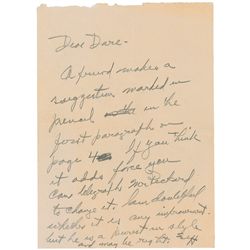 Dear Dare-
A friend makes a
suggestion marked in
pencil in the
first paragraph on
page 4 If you think
it adds force you
can telegraph Mr Packard
to change it. I am doubtful
whether it is any improvement.
but he is a purist in style
and may be right.